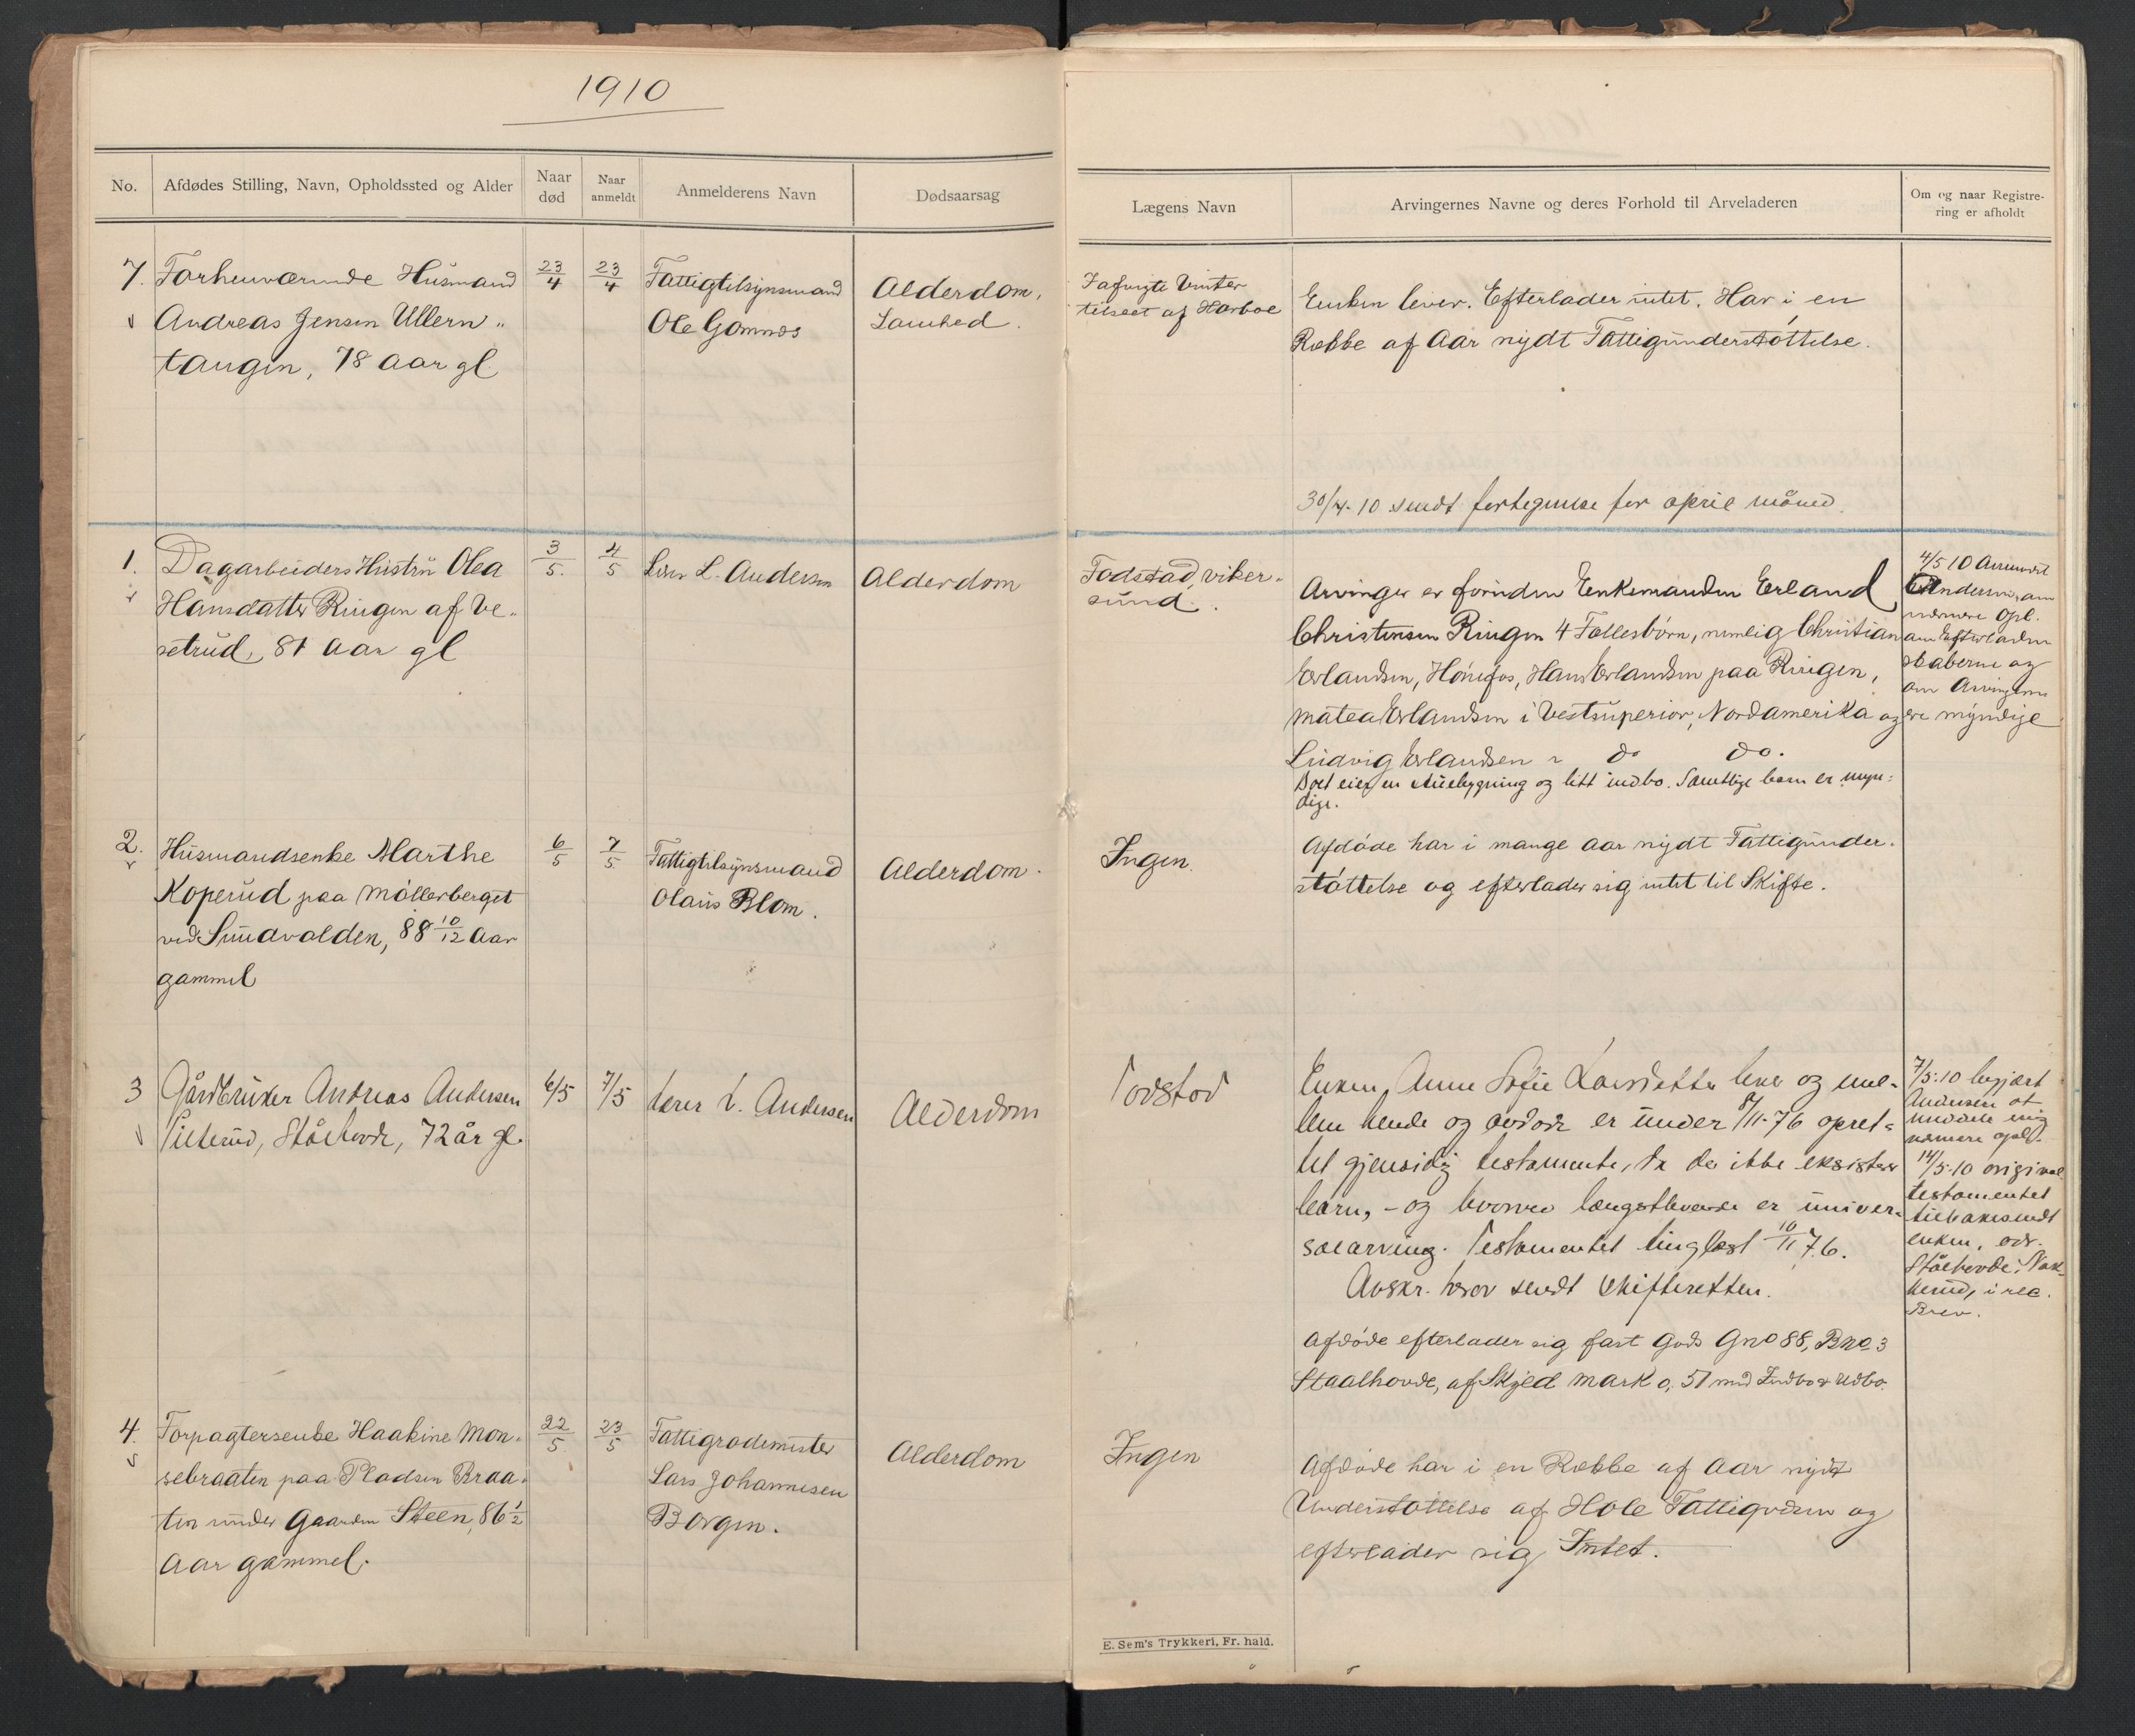 1910
No.
Afdødes Stilling, Navn, Opholdssted og Alder
Naar død
Naar anmeldt
Anmelderens Navn
Dødsaarsag
7. Forhenværende Husmand
Andreas Jensen Ullern„
tangen, 78 aar gl
23/4
23/4
Fattigtilsynsmand
Ole Gomnæs
Alderdom,
Lamhed.
1. Dagarbeiders Hustru Olea
Hansdatter Ringen af Ve„
setrud, 81 aar gl
3/5.
4/5
L. Andersen
Alderdom
2. Husmandsenke Marthe
Koperud paa Møllerberget
ved Sundvolden, 88 10/12 Aar
gammel
6/5
7/5
Fattigtilsynsmand
Olaus Blom.
Alderdom.
3 Gårdbruker Andreas Andersen
Pilterud, Stålhovde, 72 år gl.
6/5
7/5
Lærer L. Andersen
Alderdom
4. Forpagterenke Haakine Mon„
sebraaten paa Pladsen Braa„
ten under Gaarden Steen, 86 1/2
Aar gammel.
22/5
23/5
Fattigrodemester
Lars Johannesen
Borgen.
Alderdom
Lægens Navn
Arvingernes Navne og deres Forhold til Arveladeren
Om og naar Registre-
ring er afholdt
Iafvigte Vinter
tilseet af Harboe
Enken lever. Efterlader intet. Har i en
Række af Aar nydt Fattigunderstøttelse.
30/4-10 sendt fortegnelse for april måned.
Todstad, viker„
sund.
Arvinger er foruden Enkemanden Erland
Christensen Ringen 4 Fællesbørn, nemlig Christian
Erlandsen, Hønefos, Hans Erlandsen paa Ringen,
Matea Erlandsen i Vestsuperior, Nordamerika og
Ludvig Erlandsen " do do.
Boet eier en stuebygning og litt indbo. Samtlige barn er myn-
dige.
4/5 10 Anmodet
Andersen om
nærmere Opl.
om Efterladen
skaberne og
om Arvingerne
ere myndige
Ingen.
Afdøde har i mange aar nydt Fattigunder„
støttelse og efterlader sig intet til Skifte.
Todstad
Enken, Anne Sofie Larsdatter lever og mel-
lem hende og avdøde er under 8/11-76 opret-
tet gjensidig testamente, da der ikke eksisterer
barn, - og hvorved længstlevende er univer-
salarving. Testamentet tinglæst 10/11 76.
Avskr. herav sendt skifteretten.
Afdøde efterlader sig fast Gods Gno 88, Bno 3
Staalhovde, af Skyld mark 0,51 med Indbo & Udbo.
7/5-10 begjært
Andersen at
meddele mig
nærmere opl.
14/5-10 original
testamentet
tilbakesendt
enken, adr.
Stålhovde, Nak-
kerud, i rec.
Brev.
Ingen
Afdøde har i en Række af Aar nydt
Understøttelse af Hole Fattigvæsen og
efterlader sig Intet.
E. Sem's Trykkeri, Fr. hald.